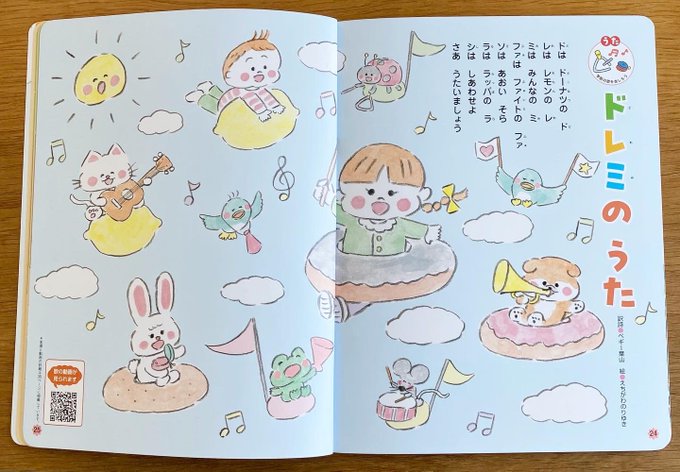 うた
ドレミのうた
ドは ドーナツの ド
レは レモンの レ
ミは みんなの ミ
ファは ファイトの ファ
ソは あおい そら
ラは ラッパの ラ
シは しあわせよ
さあ うたいましょう
訳詞●ペギー葉山 絵●えちがわのりゆき
24
歌の動画が
見られます
25